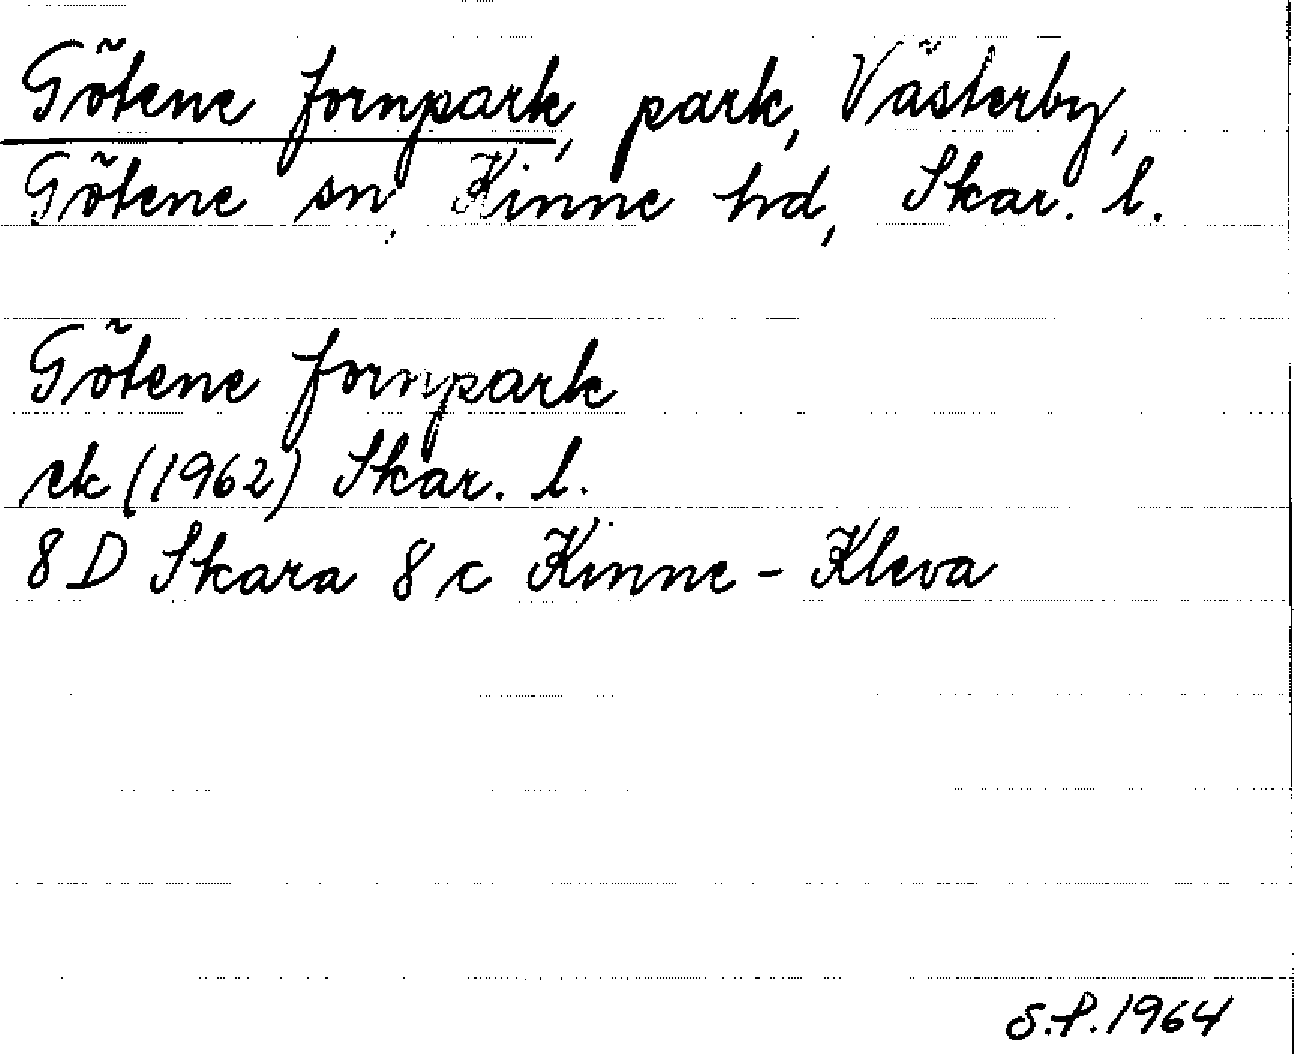 Götene fornpark, park, Västerby,
Götene sn, Kinne hd, Skar. l.
Götene fornpark
ek (1962) Skar. l.
8 D Skara 8 c Kinne-Kleva
S.P. 1964